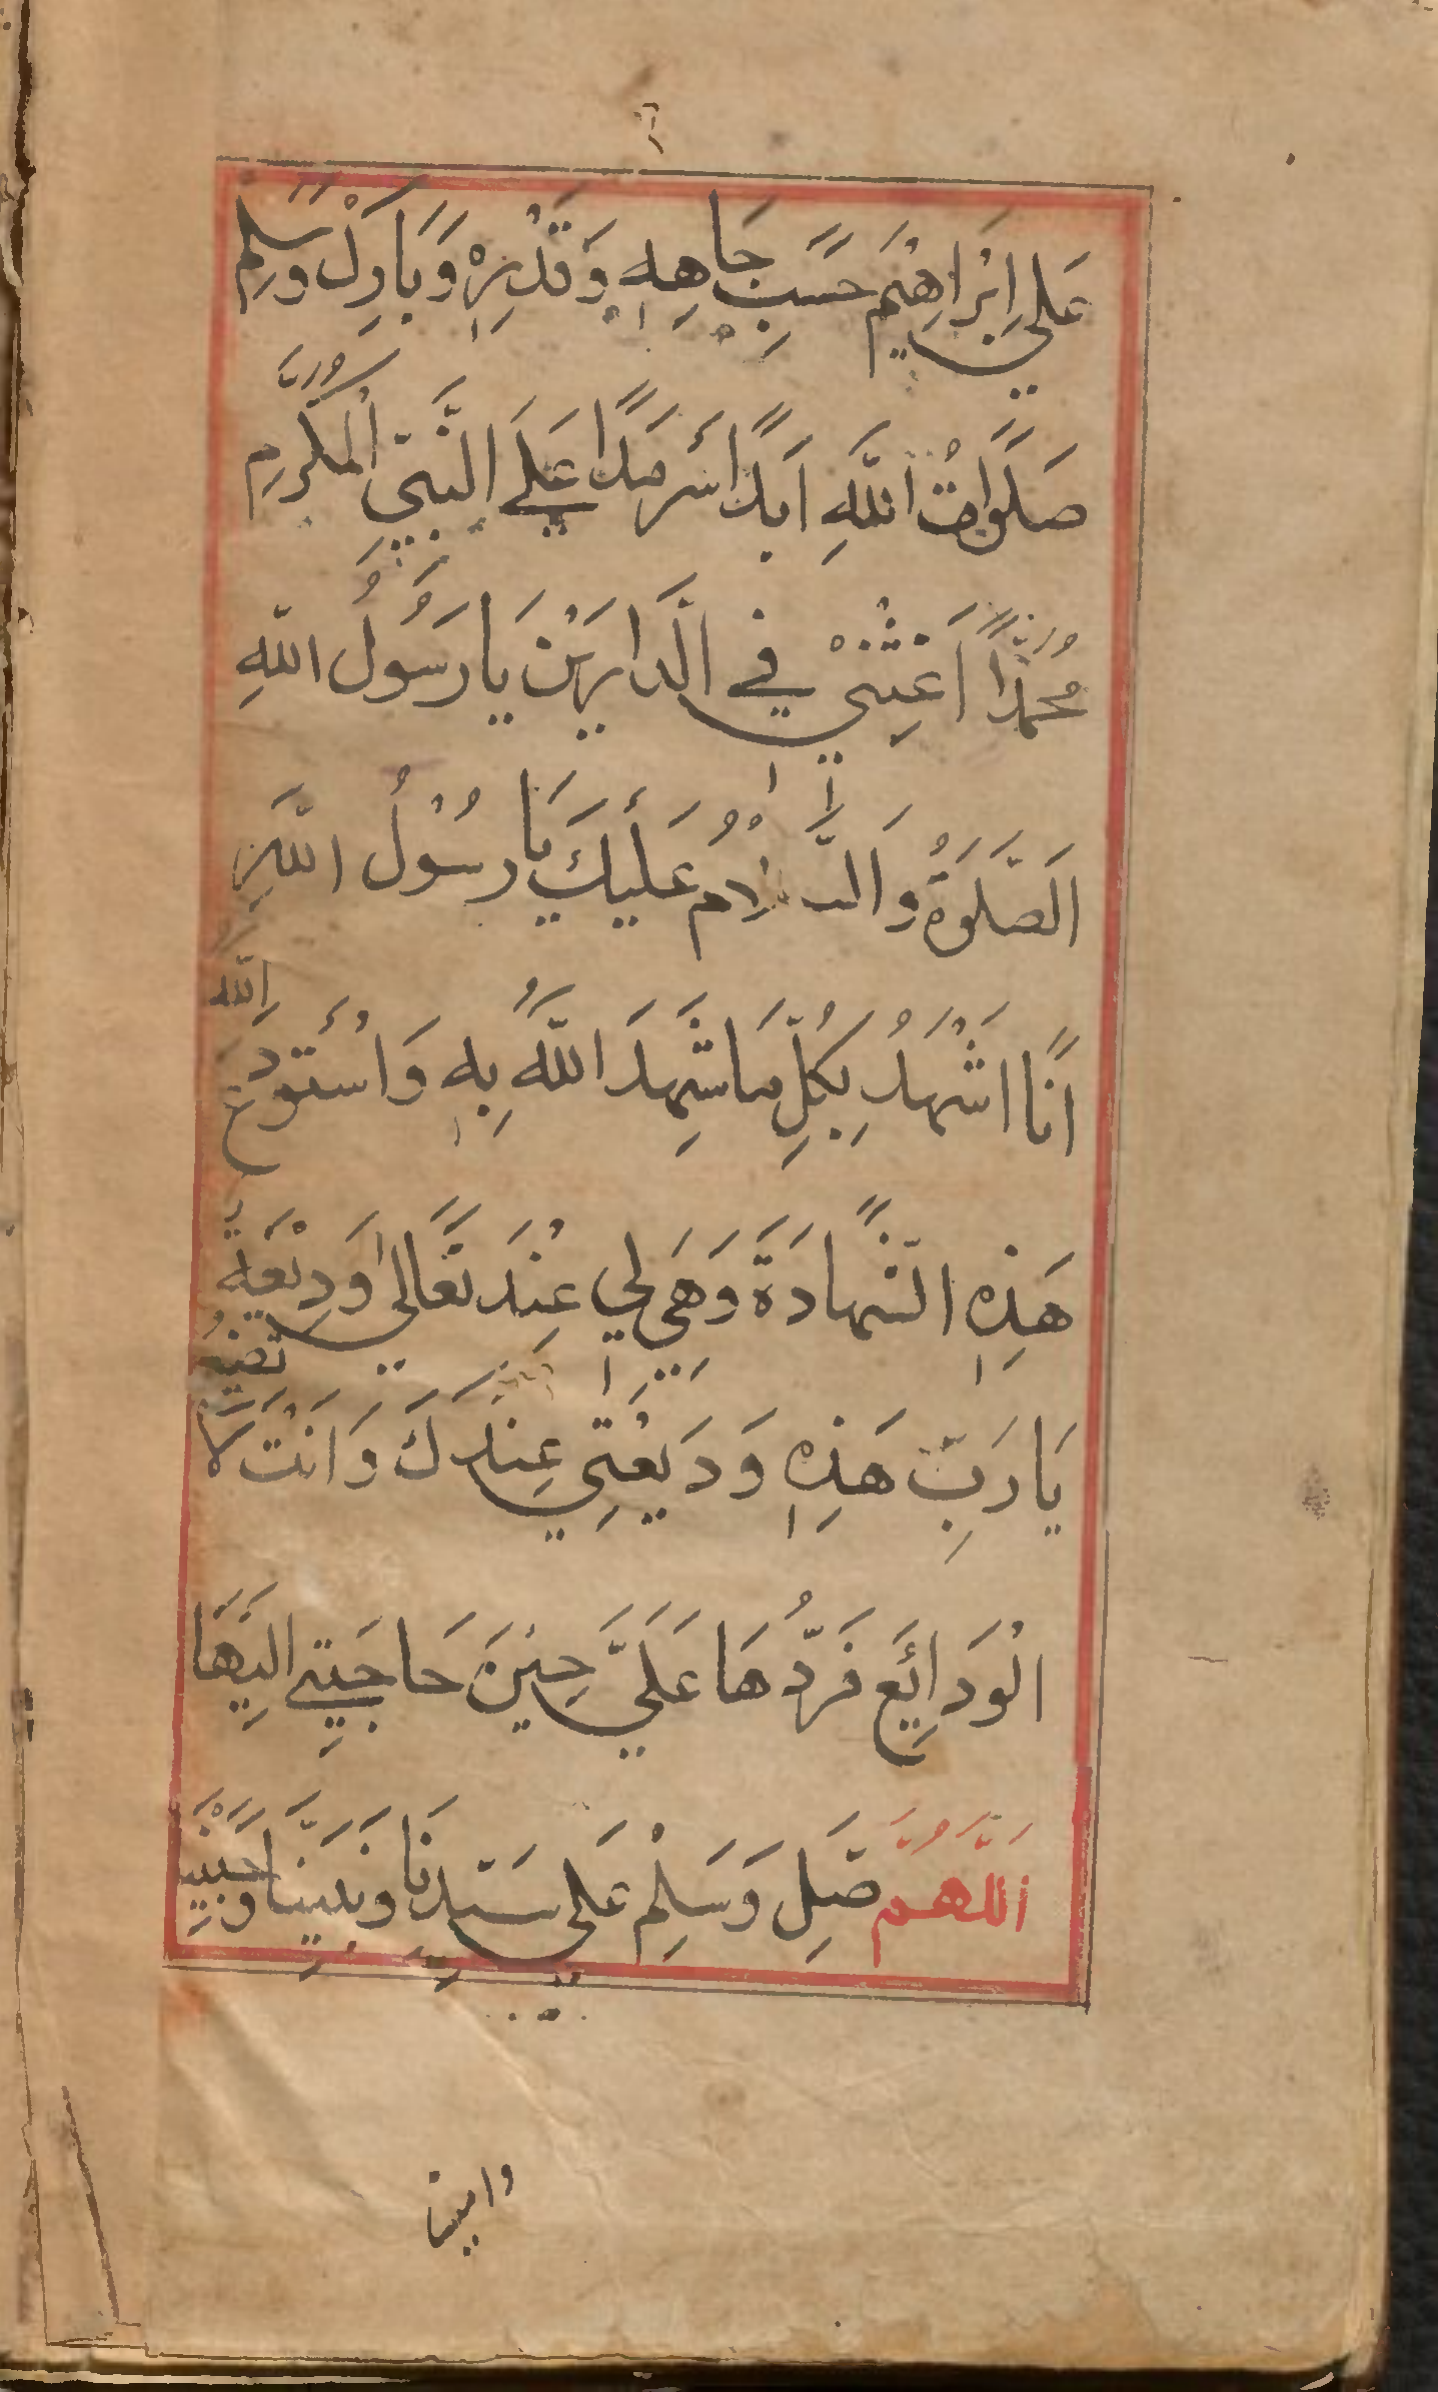 عَلٰي اِبْرَاهِيْمَ حَسَبِ جَاهِهٖ وَقَدْرِهٖ وَبَارِكْ وَسَلِّمْ
صَلَوَاتُ اللّٰهِ اَبَدًا سَرْمَدًا عَلَى النَّبِيِّ الْمُكَرَّمِ
مُحَمَّدًا اَغِثْنِيْ فِي الدَّارَيْنِ يَا رَسُوْلُ اللّٰهِ
اَلصَّلٰوةُ وَالسَّلَامُ عَلَيْكَ يَا رَسُوْلُ اللّٰهِ
اَنَا اَشْهَدُ بِكُلِّ مَا شَهِدَ اللّٰهُ بِهٖ وَاَسْتَوْدِعُ اللّٰهَ
هَذِهِ الشَّهَادَةَ وَهِيَ لِي عِنْدَ تَعَالٰي وَدِيْعَةٌ
يَا رَبِّ هَذِهٖ وَدِيْعَتِي عِنْدَكَ وَاَنْتَ لَا تَضِيْعُ
الْوَدَائِعَ فَرُدَّهَا عَلَيَّ حِيْنَ حَاجَتِي اِلَيْهَا
اَللّٰهُمَّ صَلِّ وَسَلِّمْ عَلٰي سَيِّدِنَا وَنَبِيِّنَا وَحَبِيْبِنَا